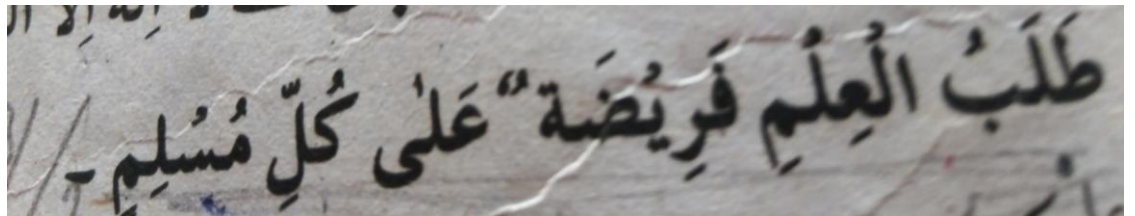 طَلَبُ الْعِلْمِ فَرِيْضَةٌ عَلٰى كُلِّ مُسْلِمٍ ـ